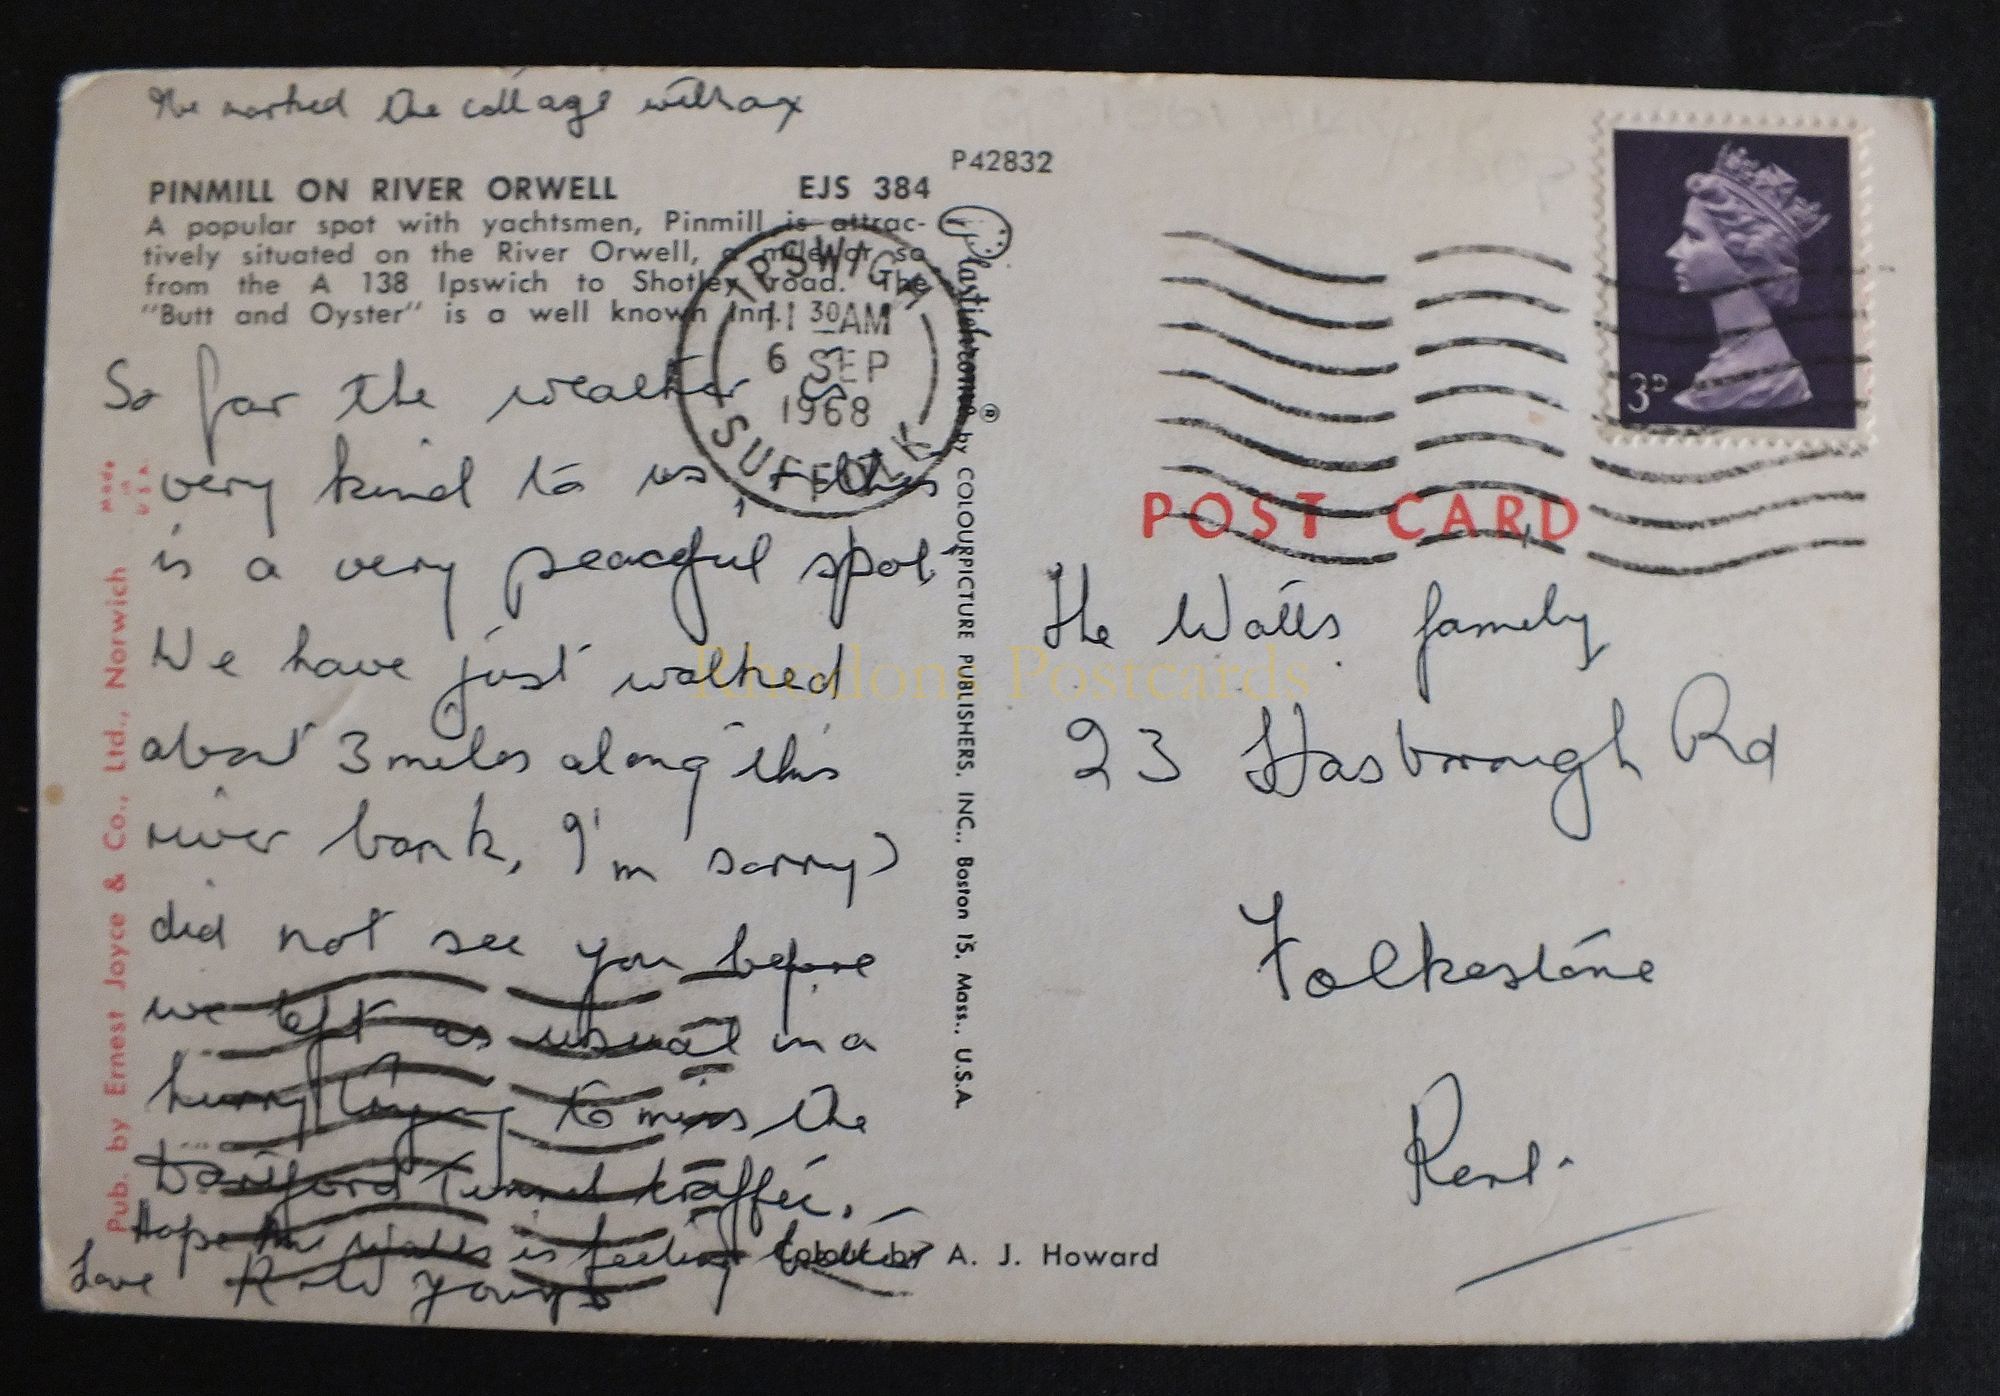 We marked the cottage with a x
P42832
PINMILL ON RIVER ORWELL EJS 384
A popular spot with yachtsmen, Pinmill is attrac-
tively situated on the River Orwell, a mile or so
from the A 138 Ipswich to Shotley road. The
"Butt and Oyster" is a well known Inn.
IPSWICH
11 30AM
6 SEP
1968
SUFFOLK
So far the weather is
very kind to us, this
is a very peaceful spot,
We have just walked
about 3 miles along this
river bank, I'm sorry I
did not see you before
we left as usual in a
hurry trying to miss the
Dartford Tunnel traffic.
Hope Mr Watts is feeling better
Love
Made
in
U.S.A.
Pub. by Ernest Joyce & Co., Ltd., Norwich
Plastichrome ® by COLOURPICTURE PUBLISHERS, INC., Boston 15, Mass., U.S.A.
Colour by A. J. Howard
3D
POST CARD
The Watts family
23 Hasborough Rd
Folkestone
Kent.
Rhodons Postcards